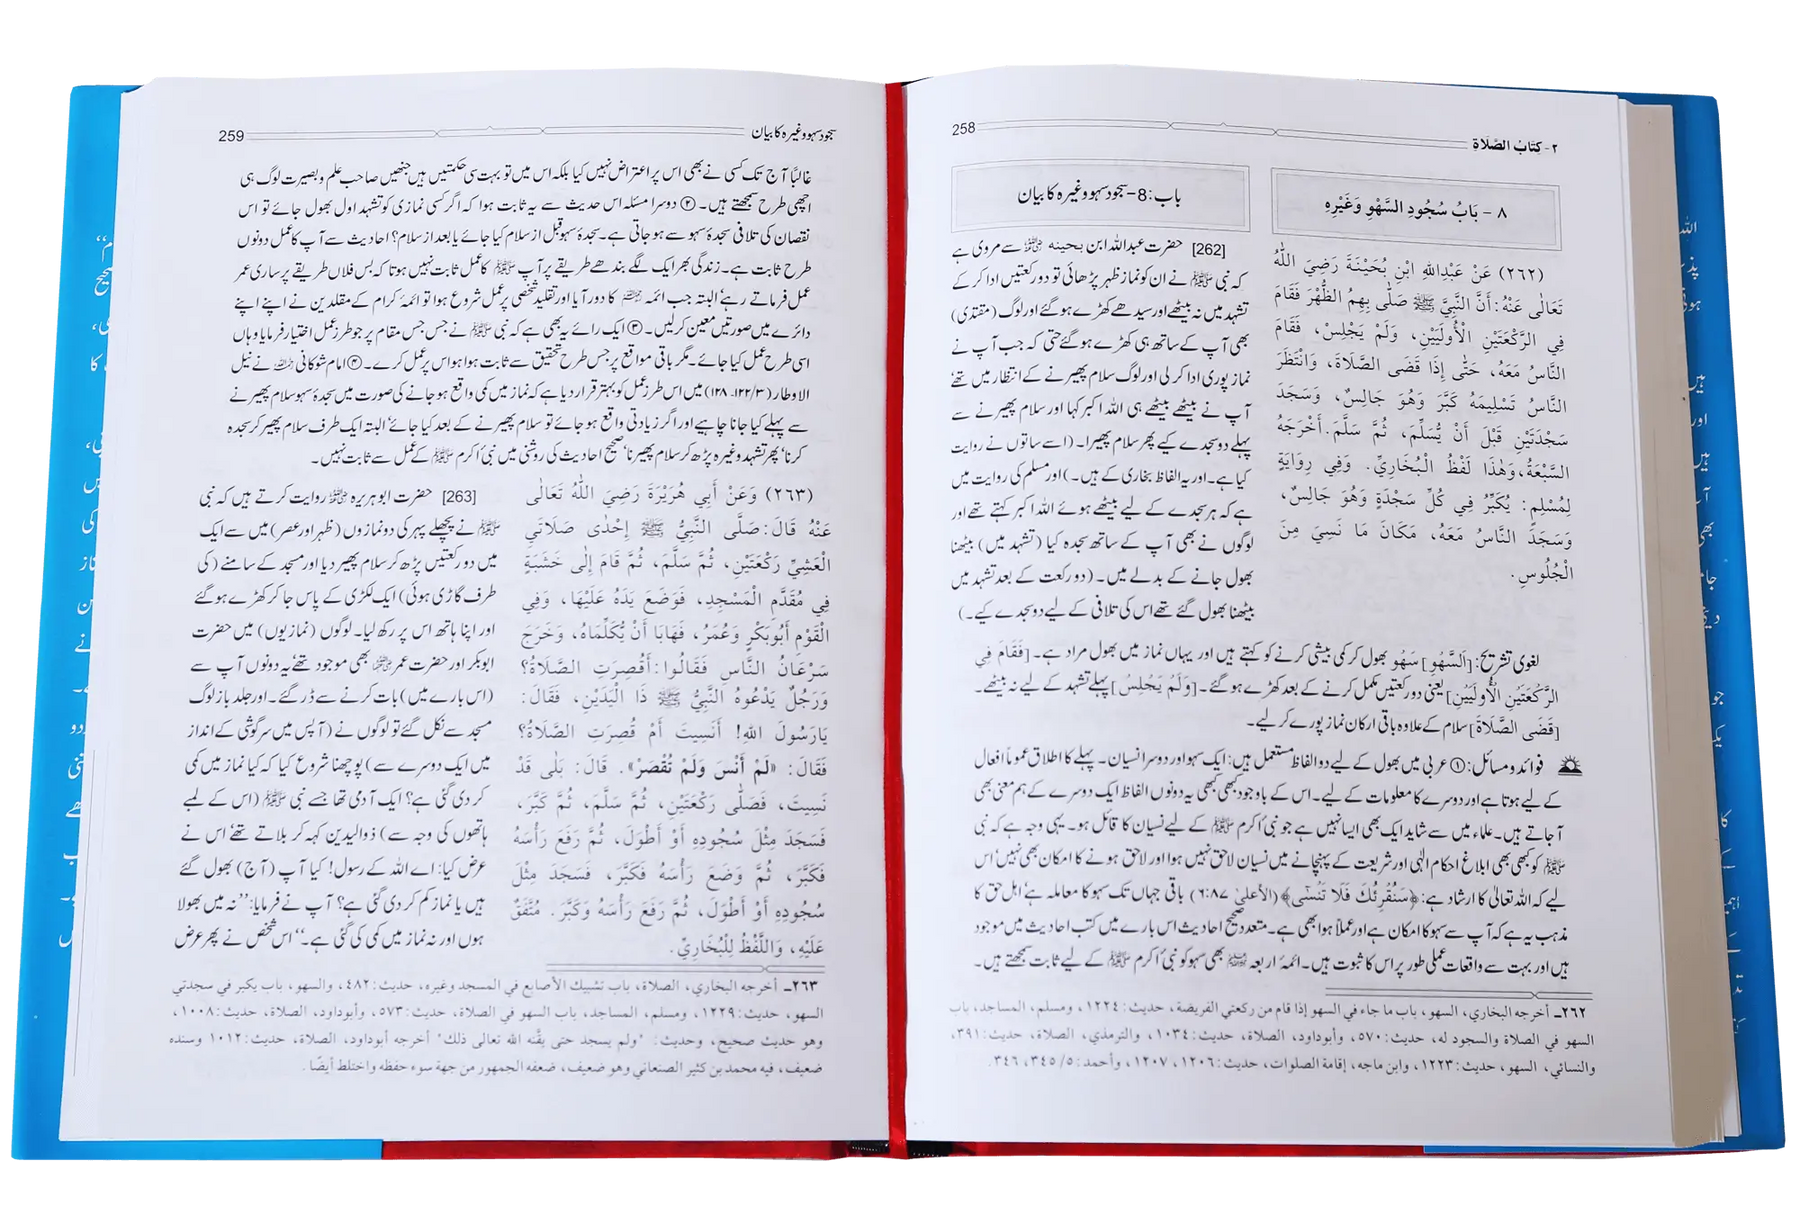 ٢- كِتَابُ الصَّلَاةِ
258
٨ - بَابُ سُجُودِ السَّهْوِ وَغَيْرِهِ
(٢٦٢) عَنْ عَبْدِاللهِ ابْنِ بُحَيْنَةَ رَضِيَ اللهُ
تَعَالٰى عَنْهُ: أَنَّ النَّبِيَّ ﷺ صَلّٰى بِهِمُ الظُّهْرَ فَقَامَ
فِي الرَّكْعَتَيْنِ الْأُولَيَيْنِ، وَلَمْ يَجْلِسْ، فَقَامَ
النَّاسُ مَعَهُ، حَتّٰى إِذَا قَضَى الصَّلَاةَ، وَانْتَظَرَ
النَّاسُ تَسْلِيمَهُ كَبَّرَ وَهُوَ جَالِسٌ، وَسَجَدَ
سَجْدَتَيْنِ قَبْلَ أَنْ يُسَلِّمَ، ثُمَّ سَلَّمَ. أَخْرَجَهُ
السَّبْعَةُ، وَهٰذَا لَفْظُ الْبُخَارِيِّ. وَفِي رِوَايَةٍ
لِمُسْلِمٍ: يُكَبِّرُ فِي كُلِّ سَجْدَةٍ وَهُوَ جَالِسٌ،
وَسَجَدَ النَّاسُ مَعَهُ، مَكَانَ مَا نَسِيَ مِنَ
الْجُلُوسِ.
باب:8- سجود سہو وغیرہ کا بیان
[262] حضرت عبداللہ ابن بحینہ ؓ سے مروی ہے
کہ نبی ﷺ نے ان کو نماز ظہر پڑھائی تو دو رکعتیں ادا کر کے
تشہد میں نہ بیٹھے اور سیدھے کھڑے ہو گئے اور لوگ (مقتدی)
بھی آپ کے ساتھ ہی کھڑے ہو گئے حتی کہ جب آپ نے
نماز پوری ادا کر لی اور لوگ سلام پھیرنے کے انتظار میں تھے
آپ نے بیٹھے بیٹھے ہی اللہ اکبر کہا اور سلام پھیرنے سے
پہلے دو سجدے کیے پھر سلام پھیرا۔ (اسے ساتوں نے روایت
کیا ہے۔ اور یہ الفاظ بخاری کے ہیں۔) اور مسلم کی روایت میں
ہے کہ ہر سجدے کے لیے بیٹھے ہوئے اللہ اکبر کہتے تھے اور
لوگوں نے بھی آپ کے ساتھ سجدہ کیا (تشہد میں) بیٹھنا
بھول جانے کے بدلے میں۔ (دو رکعت کے بعد تشہد میں
بیٹھنا بھول گئے تھے اس کی تلافی کے لیے دو سجدے کیے۔)
لغوی تشریح: [اَلسَّهْو] سَهْو بھول کر کمی بیشی کرنے کو کہتے ہیں اور یہاں نماز میں بھول مراد ہے۔ [فَقَامَ فِي
الرَّكْعَتَيْنِ الْأُولَيَيْنِ] یعنی دو رکعتیں مکمل کرنے کے بعد کھڑے ہو گئے۔ [وَلَمْ يَجْلِسْ] پہلے تشہد کے لیے نہ بیٹھے۔
[قَضَى الصَّلَاةَ] سلام کے علاوہ باقی ارکان نماز پورے کر لیے۔
فوائد و مسائل: ① عربی میں بھول کے لیے دو الفاظ مستعمل ہیں: ایک سہو اور دوسرا نسیان۔ پہلے کا اطلاق عموماً افعال
کے لیے ہوتا ہے اور دوسرے کا معلومات کے لیے۔ اس کے باوجود کبھی کبھی یہ دونوں الفاظ ایک دوسرے کے ہم معنی بھی
آ جاتے ہیں۔ علماء میں سے شاید ایک بھی ایسا نہیں ہے جو نبی اکرم ﷺ کے لیے نسیان کا قائل ہو۔ یہی وجہ ہے کہ نبی
ﷺ کو کبھی بھی ابلاغ احکام الٰہی اور شریعت کے پہنچانے میں نسیان لاحق نہیں ہوا اور لاحق ہونے کا امکان بھی نہیں اس
لیے کہ اللہ تعالیٰ کا ارشاد ہے: ﴿سَنُقْرِئُكَ فَلَا تَنْسٰى﴾ (الأعلى ٨٧:٦) باقی جہاں تک سہو کا معاملہ ہے اہل حق کا
مذہب یہ ہے کہ آپ سے سہو کا امکان ہے اور عملاً ہوا بھی ہے۔ متعدد صحیح احادیث اس بارے میں کتب احادیث میں موجود
ہیں اور بہت سے واقعات عملی طور پر اس کا ثبوت ہیں۔ ائمہ اربعہ بھی سہو کو نبی اکرم ﷺ کے لیے ثابت سمجھتے ہیں۔
٢٦٢ـ أخرجه البخاري، السهو، باب ما جاء في السهو إذا قام من ركعتي الفريضة، حديث: ١٢٢٤، ومسلم، المساجد، باب
السهو في الصلاة والسجود له، حديث: ٥٧٠، وأبوداود، الصلاة، حديث: ١٠٣٤، والترمذي، الصلاة، حديث: ٣٩١،
والنسائي، السهو، حديث: ١٢٢٣، وابن ماجه، إقامة الصلوات، حديث: ١٢٠٦، ١٢٠٧، وأحمد: ٥/ ٣٤٥، ٣٤٦.
سجود سہو وغیرہ کا بیان
259
غالبًا آج تک کسی نے بھی اس پر اعتراض نہیں کیا بلکہ اس میں تو بہت سی حکمتیں ہیں جنھیں صاحب علم و بصیرت لوگ ہی
اچھی طرح سمجھتے ہیں۔ ② دوسرا مسئلہ اس حدیث سے یہ ثابت ہوا کہ اگر کسی نمازی کو تشہد اول بھول جائے تو اس
نقصان کی تلافی سجدۂ سہو سے ہو جاتی ہے۔ سجدۂ سہو قبل از سلام کیا جائے یا بعد از سلام؟ احادیث سے آپ کا عمل دونوں
طرح ثابت ہے۔ زندگی بھر ایک لگے بندھے طریقے پر آپ ﷺ کا عمل ثابت نہیں ہوتا کہ بس فلاں طریقے پر ساری عمر
عمل فرماتے رہے، البتہ جب ائمہ کا دور آیا اور تقلید شخصی پر عمل شروع ہوا تو ائمہ کرام کے مقلدین نے اپنے اپنے
دائرے میں صورتیں معین کر لیں۔ ③ ایک رائے یہ بھی ہے کہ نبی ﷺ نے جس جس مقام پر جو طرز عمل اختیار فرمایا وہاں
اسی طرح عمل کیا جائے۔ مگر باقی مواقع پر جس طرح تحقیق سے ثابت ہوا ہو اس پر عمل کرے۔ ④ امام شوکانی نے نیل
الاوطار (۳/ ۱۲۲۔ ۱۲۸) میں اس طرز عمل کو بہتر قرار دیا ہے کہ نماز میں کمی واقع ہو جانے کی صورت میں سجدۂ سہو سلام پھیرنے
سے پہلے کیا جانا چاہیے اور اگر زیادتی واقع ہو جائے تو سلام پھیرنے کے بعد کیا جائے، البتہ ایک طرف سلام پھیر کر سجدہ
کرنا، پھر تشہد وغیرہ پڑھ کر سلام پھیرنا، صحیح احادیث کی روشنی میں نبی اکرم ﷺ کے عمل سے ثابت نہیں۔
(٢٦٣) وَعَنْ أَبِي هُرَيْرَةَ رَضِيَ اللهُ تَعَالٰى
عَنْهُ قَالَ: صَلَّى النَّبِيُّ ﷺ إِحْدٰى صَلَاتَيِ
الْعَشِيِّ رَكْعَتَيْنِ، ثُمَّ سَلَّمَ، ثُمَّ قَامَ إِلٰى خَشَبَةٍ
فِي مُقَدَّمِ الْمَسْجِدِ، فَوَضَعَ يَدَهُ عَلَيْهَا، وَفِي
الْقَوْمِ أَبُوبَكْرٍ وَعُمَرُ، فَهَابَا أَنْ يُكَلِّمَاهُ، وَخَرَجَ
سَرْعَانُ النَّاسِ فَقَالُوا: أَقُصِرَتِ الصَّلَاةُ؟
وَرَجُلٌ يَدْعُوهُ النَّبِيُّ ﷺ ذَا الْيَدَيْنِ، فَقَالَ:
يَارَسُولَ اللهِ! أَنَسِيتَ أَمْ قُصِرَتِ الصَّلَاةُ؟
فَقَالَ: «لَمْ أَنْسَ وَلَمْ تُقْصَرْ». قَالَ: بَلٰى قَدْ
نَسِيتَ، فَصَلّٰى رَكْعَتَيْنِ، ثُمَّ سَلَّمَ، ثُمَّ كَبَّرَ،
فَسَجَدَ مِثْلَ سُجُودِهِ أَوْ أَطْوَلَ، ثُمَّ رَفَعَ رَأْسَهُ
فَكَبَّرَ، ثُمَّ وَضَعَ رَأْسَهُ فَكَبَّرَ، فَسَجَدَ مِثْلَ
سُجُودِهِ أَوْ أَطْوَلَ، ثُمَّ رَفَعَ رَأْسَهُ وَكَبَّرَ. مُتَّفَقٌ
عَلَيْهِ، وَاللَّفْظُ لِلْبُخَارِيِّ.
[263] حضرت ابوہریرہ ؓ روایت کرتے ہیں کہ نبی
ﷺ نے پچھلے پہر کی دو نمازوں (ظہر اور عصر) میں سے ایک
میں دو رکعتیں پڑھ کر سلام پھیر دیا اور مسجد کے سامنے (کی
طرف گاڑی ہوئی) ایک لکڑی کے پاس جا کر کھڑے ہو گئے
اور اپنا ہاتھ اس پر رکھ لیا۔ لوگوں (نمازیوں) میں حضرت
ابوبکر اور حضرت عمر ؓ بھی موجود تھے، یہ دونوں آپ سے
(اس بارے میں) بات کرنے سے ڈر گئے۔ اور جلد باز لوگ
مسجد سے نکل گئے تو لوگوں نے (آپس میں سرگوشی کے انداز
میں ایک دوسرے سے) پوچھنا شروع کیا کہ کیا نماز میں کمی
کر دی گئی ہے؟ ایک آدمی تھا جسے نبی ﷺ (اس کے لمبے
ہاتھوں کی وجہ سے) ذوالیدین کہہ کر بلاتے تھے، اس نے
عرض کیا: اے اللہ کے رسول! کیا آپ (آج) بھول گئے
ہیں یا نماز کم کر دی گئی ہے؟ آپ نے فرمایا: ”نہ میں بھولا
ہوں اور نہ نماز میں کمی کی گئی ہے۔“ اس شخص نے پھر عرض
٢٦٣ـ أخرجه البخاري، الصلاة، باب تشبيك الأصابع في المسجد وغيره، حديث: ٤٨٢، والسهو، باب يكبر في سجدتي
السهو، حديث: ١٢٢٩، ومسلم، المساجد، باب السهو في الصلاة، حديث: ٥٧٣، وأبوداود، الصلاة، حديث: ١٠٠٨،
وهو حديث صحيح، وحديث: "ولم يسجد حتى يقّنه الله تعالى ذلك" أخرجه أبوداود، الصلاة، حديث: ١٠١٢ وسنده
ضعيف، فيه محمد بن كثير الصنعاني وهو ضعيف، ضعفه الجمهور من جهة سوء حفظه واختلط أيضًا.